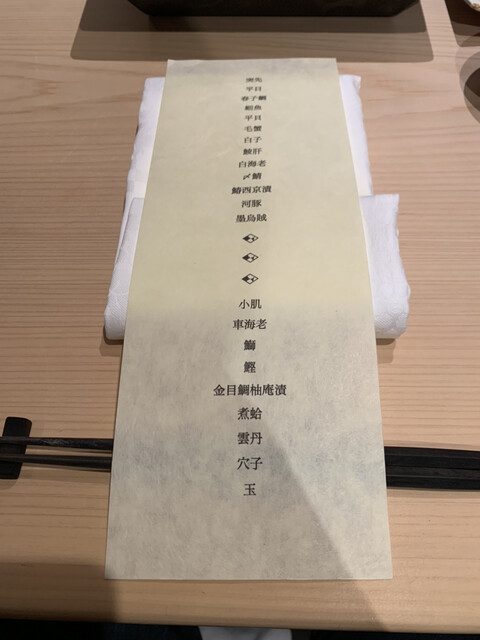 突先
平目
春子鯛
細魚
平貝
毛蟹
白子
鮟肝
白海老
〆鯖
鰆西京漬
河豚
墨烏賊
小肌
車海老
鰤
鰹
金目鯛柚庵漬
煮蛤
雲丹
穴子
玉